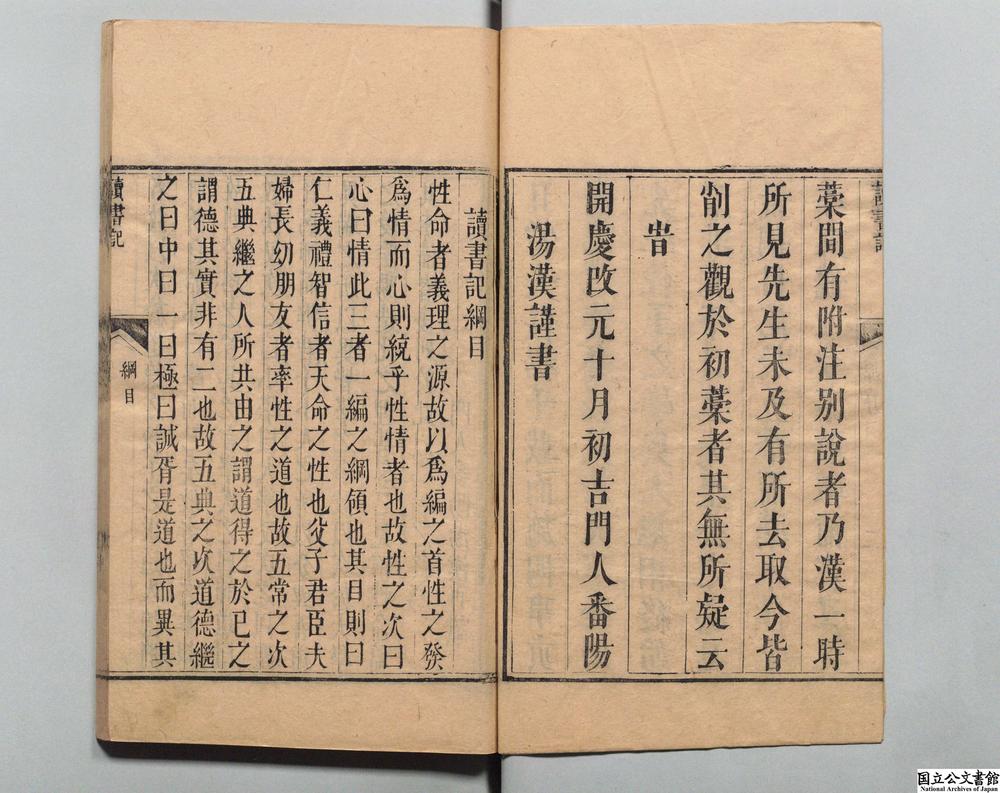 藁間有附注别說者乃漢一時
所見先生未及有所去取今皆
削之觀於初藁者其無所疑云
旹
開慶改元十月初吉門人番陽
湯漢謹書
讀書記綱目
性命者義理之源故以爲編之首性之發
爲情而心則統乎性情者也故性之次曰
心曰情此三者一編之綱領也其目則曰
仁義禮智信者天命之性也父子君臣夫
婦長幼朋友者率性之道也故五常之次
五典繼之人所共由之謂道得之於已之
謂德其實非有二也故五典之次道德繼
之曰中曰一曰極曰誠胥是道也而異其
讀書記
綱目
国立公文書館
National Archives of Japan